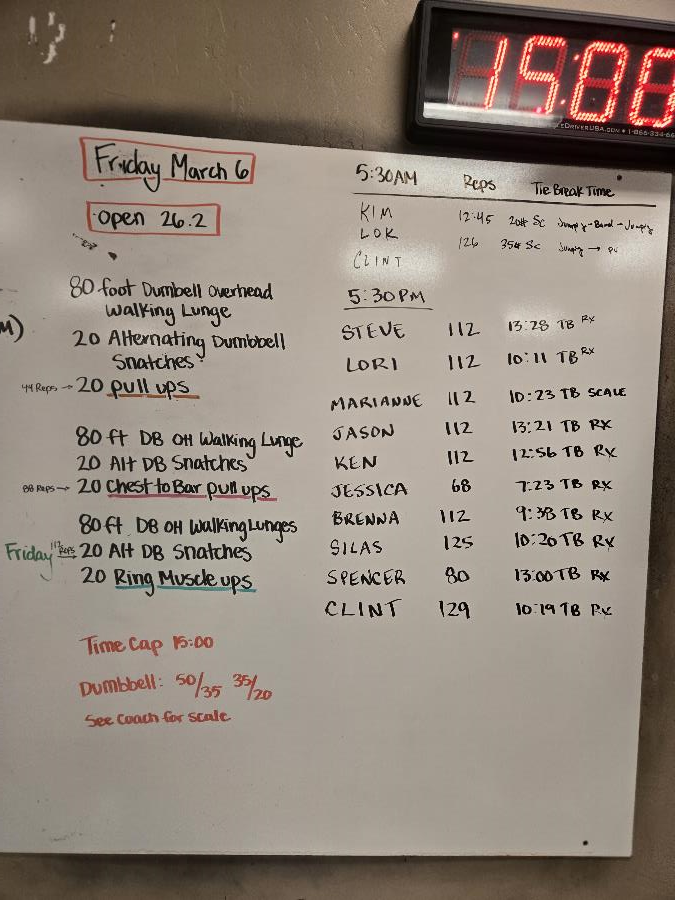 15:00
Friday March 6
open 26.2
80 foot Dumbell Overhead
Walking Lunge
20 Alternating Dumbbell
Snatches
44 Reps → 20 pull ups
80 ft DB OH Walking Lunge
20 Alt DB Snatches
88 Reps → 20 Chest to Bar pull ups
80 ft DB OH Walking Lunges
Friday 112 Reps → 20 Alt DB Snatches
20 Ring Muscle ups
Time Cap 15:00
Dumbbell: 50/35 35/20
See coach for scale
5:30AM Reps Tie Break Time
KIM 12:45 20# Sc Jumpy-Band-Jumpy
LOK 126 35# Sc Jumping → PU
CLINT
5:30 PM
STEVE 112 13:28 TB RX
LORI 112 10:11 TB RX
MARIANNE 112 10:23 TB SCALE
JASON 112 13:21 TB RX
KEN 112 12:56 TB RX
JESSICA 68 7:23 TB RX
BRENNA 112 9:38 TB RX
SILAS 125 10:20 TB RX
SPENCER 80 13:00 TB RX
CLINT 129 10:19 TB RX